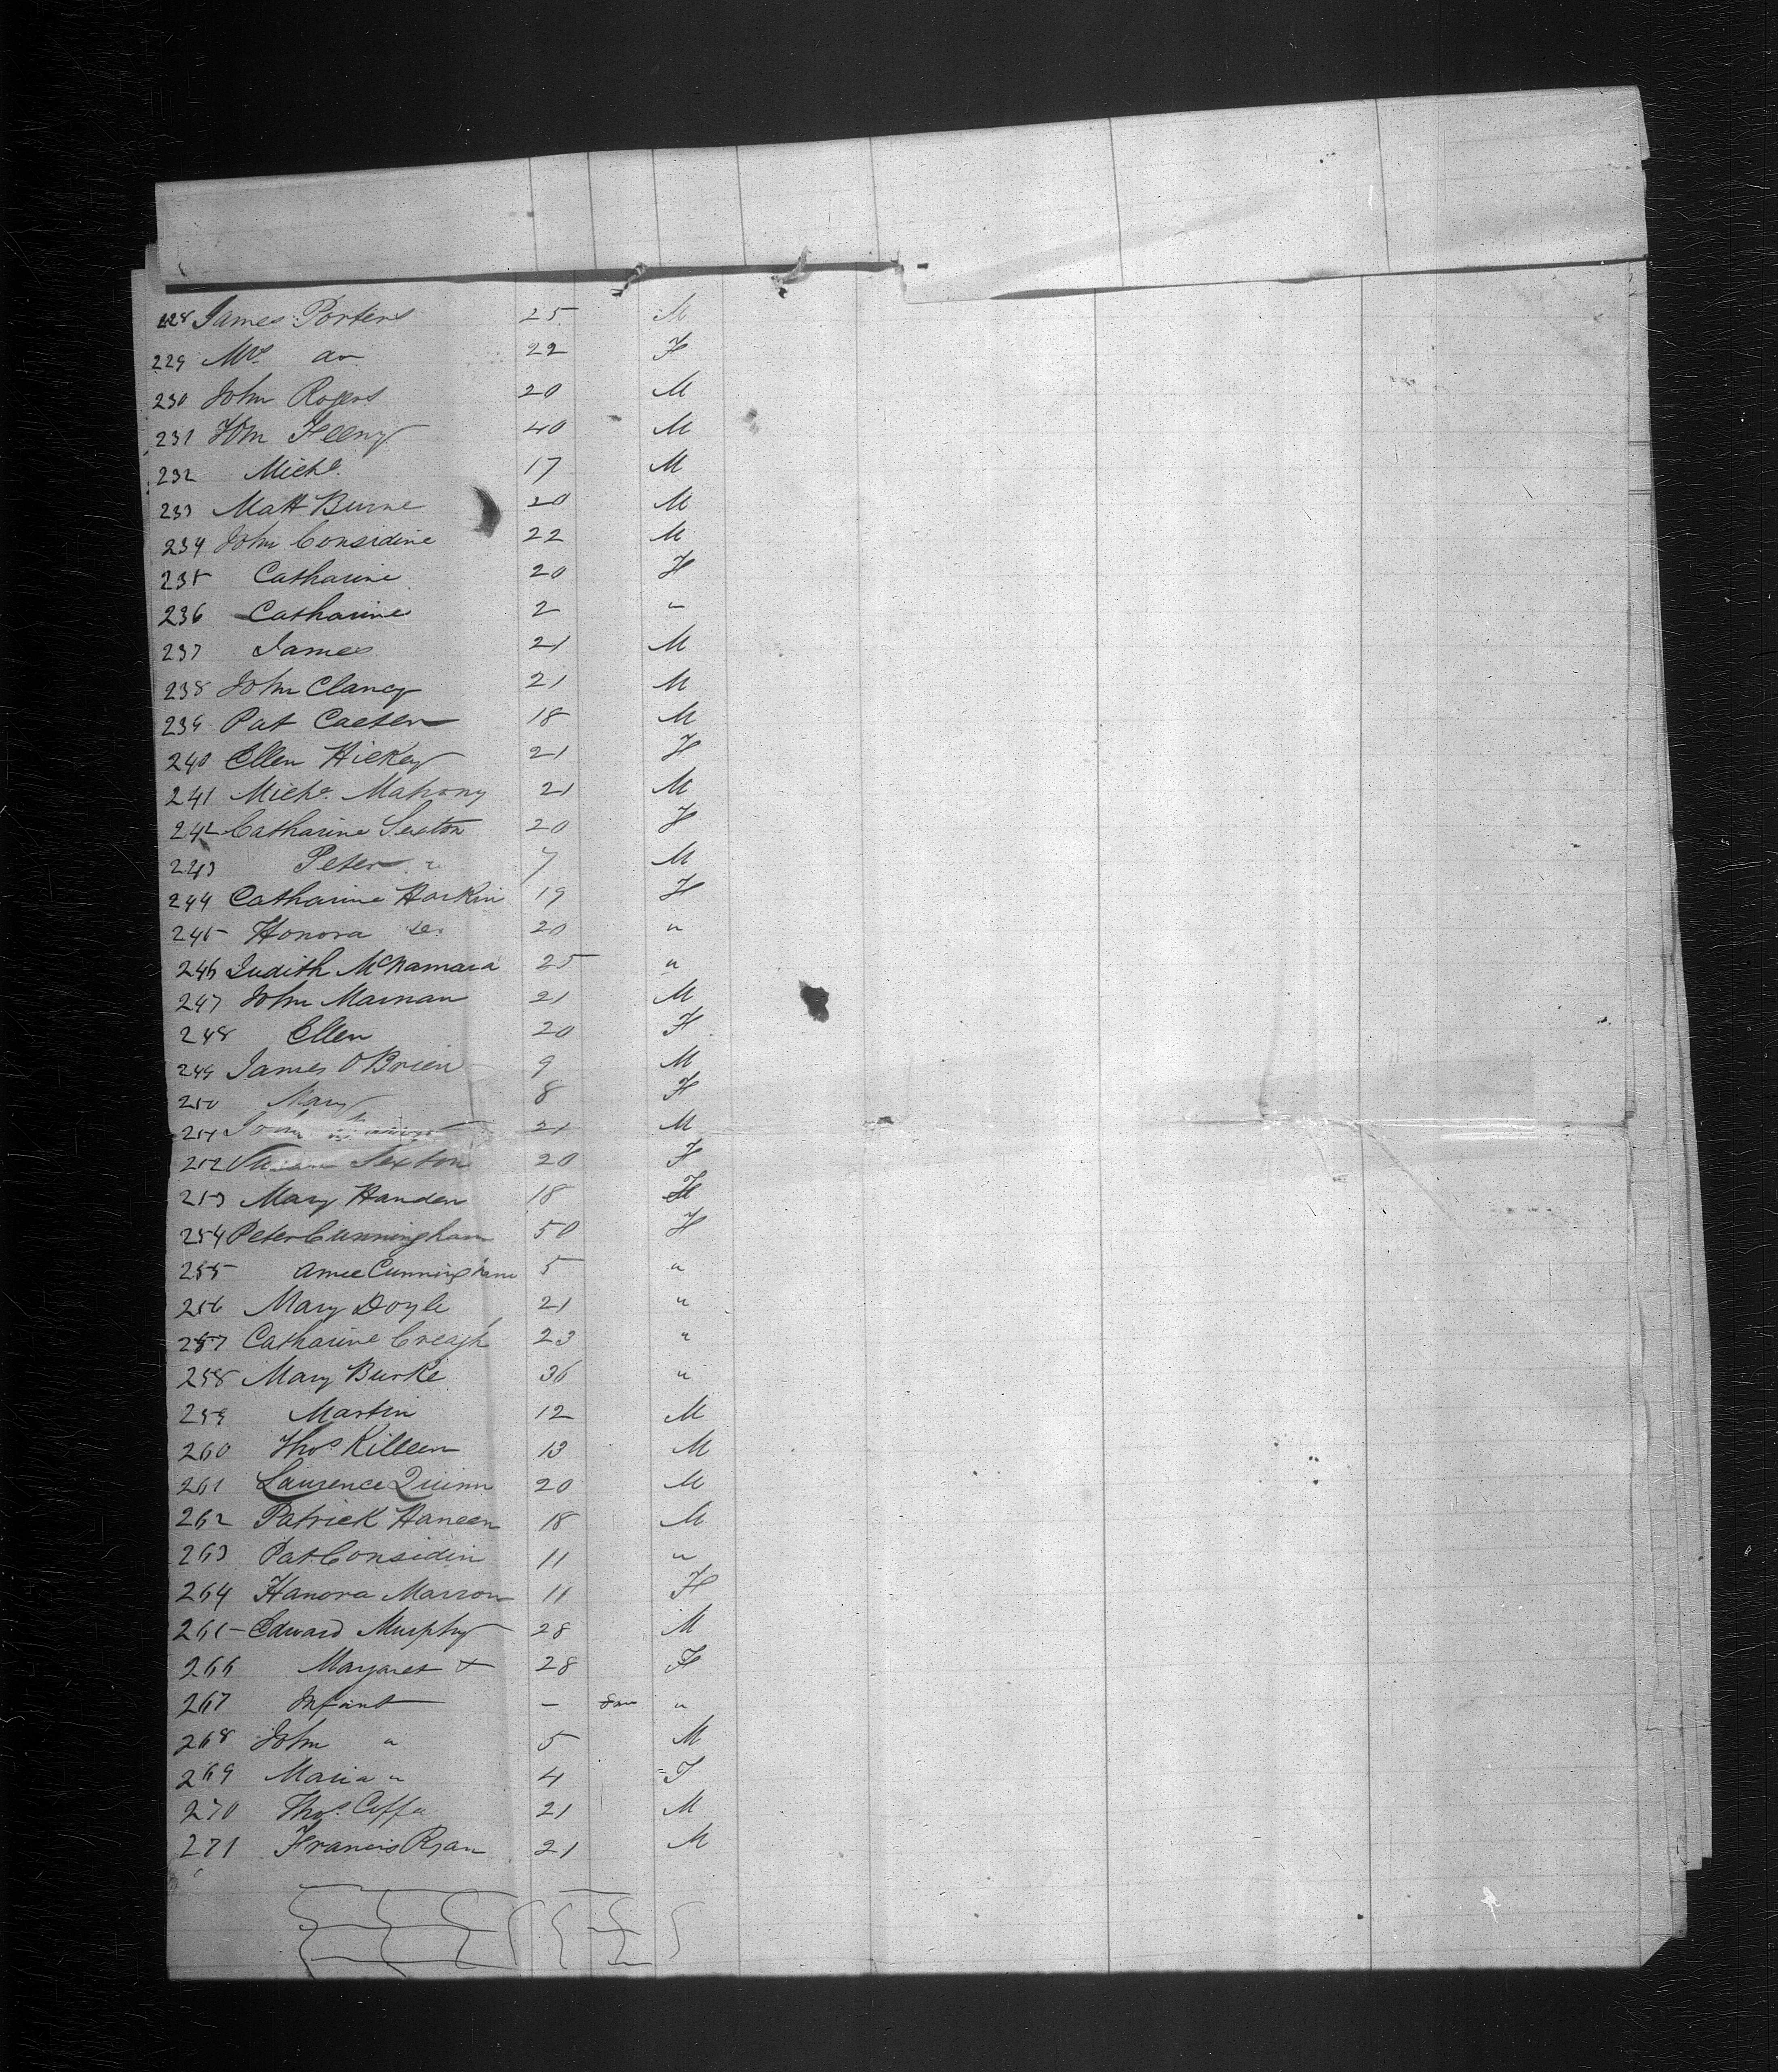 228 James Porters 25 M
229 Mrs. do 22 F
230 John Rogers 20 M
231 Wm Feeny 40 M
232 Michl. 17 M
233 Matt Burne 20 M
234 John Considine 22 M
235 Catharine 20 F
236 Catharine 2 "
237 James 21 M
238 John Clancy 21 M
239 Pat 18 M
240 Ellen Hickey 21 F
241 Michl. Mahony 21 M
242 Catharine Sexton 20 F
243 Peter " 7 M
244 Catharine Harkin 19 F
245 Honora do. 20 "
246 Judith McNamara 25 "
247 John Marnan 21 M
248 Ellen 20 F
249 James O'Brien 9 M
250 Mary 8 F
251 21 M
252 Sexton 20 F
253 Mary Handen 18 F
254 Peter Cunningham 50 F
255 Cunningham 5 "
256 Mary Doyle 21 "
257 Catharine Creagh 23 "
258 Mary Burke 36 "
259 Martin 12 M
260 Thos Killeen 13 M
261 Laurence Quinn 20 M
262 Patrick Haneen 18 M
263 Pat Considin 11 "
264 Hanora Marron 11 F
265 Edward Murphy 28 M
266 Margaret 28 F
267 Infant — "
268 John " 5 M
269 Maria " 4 F
270 Thos. 21 M
271 Francis Ryan 21 M